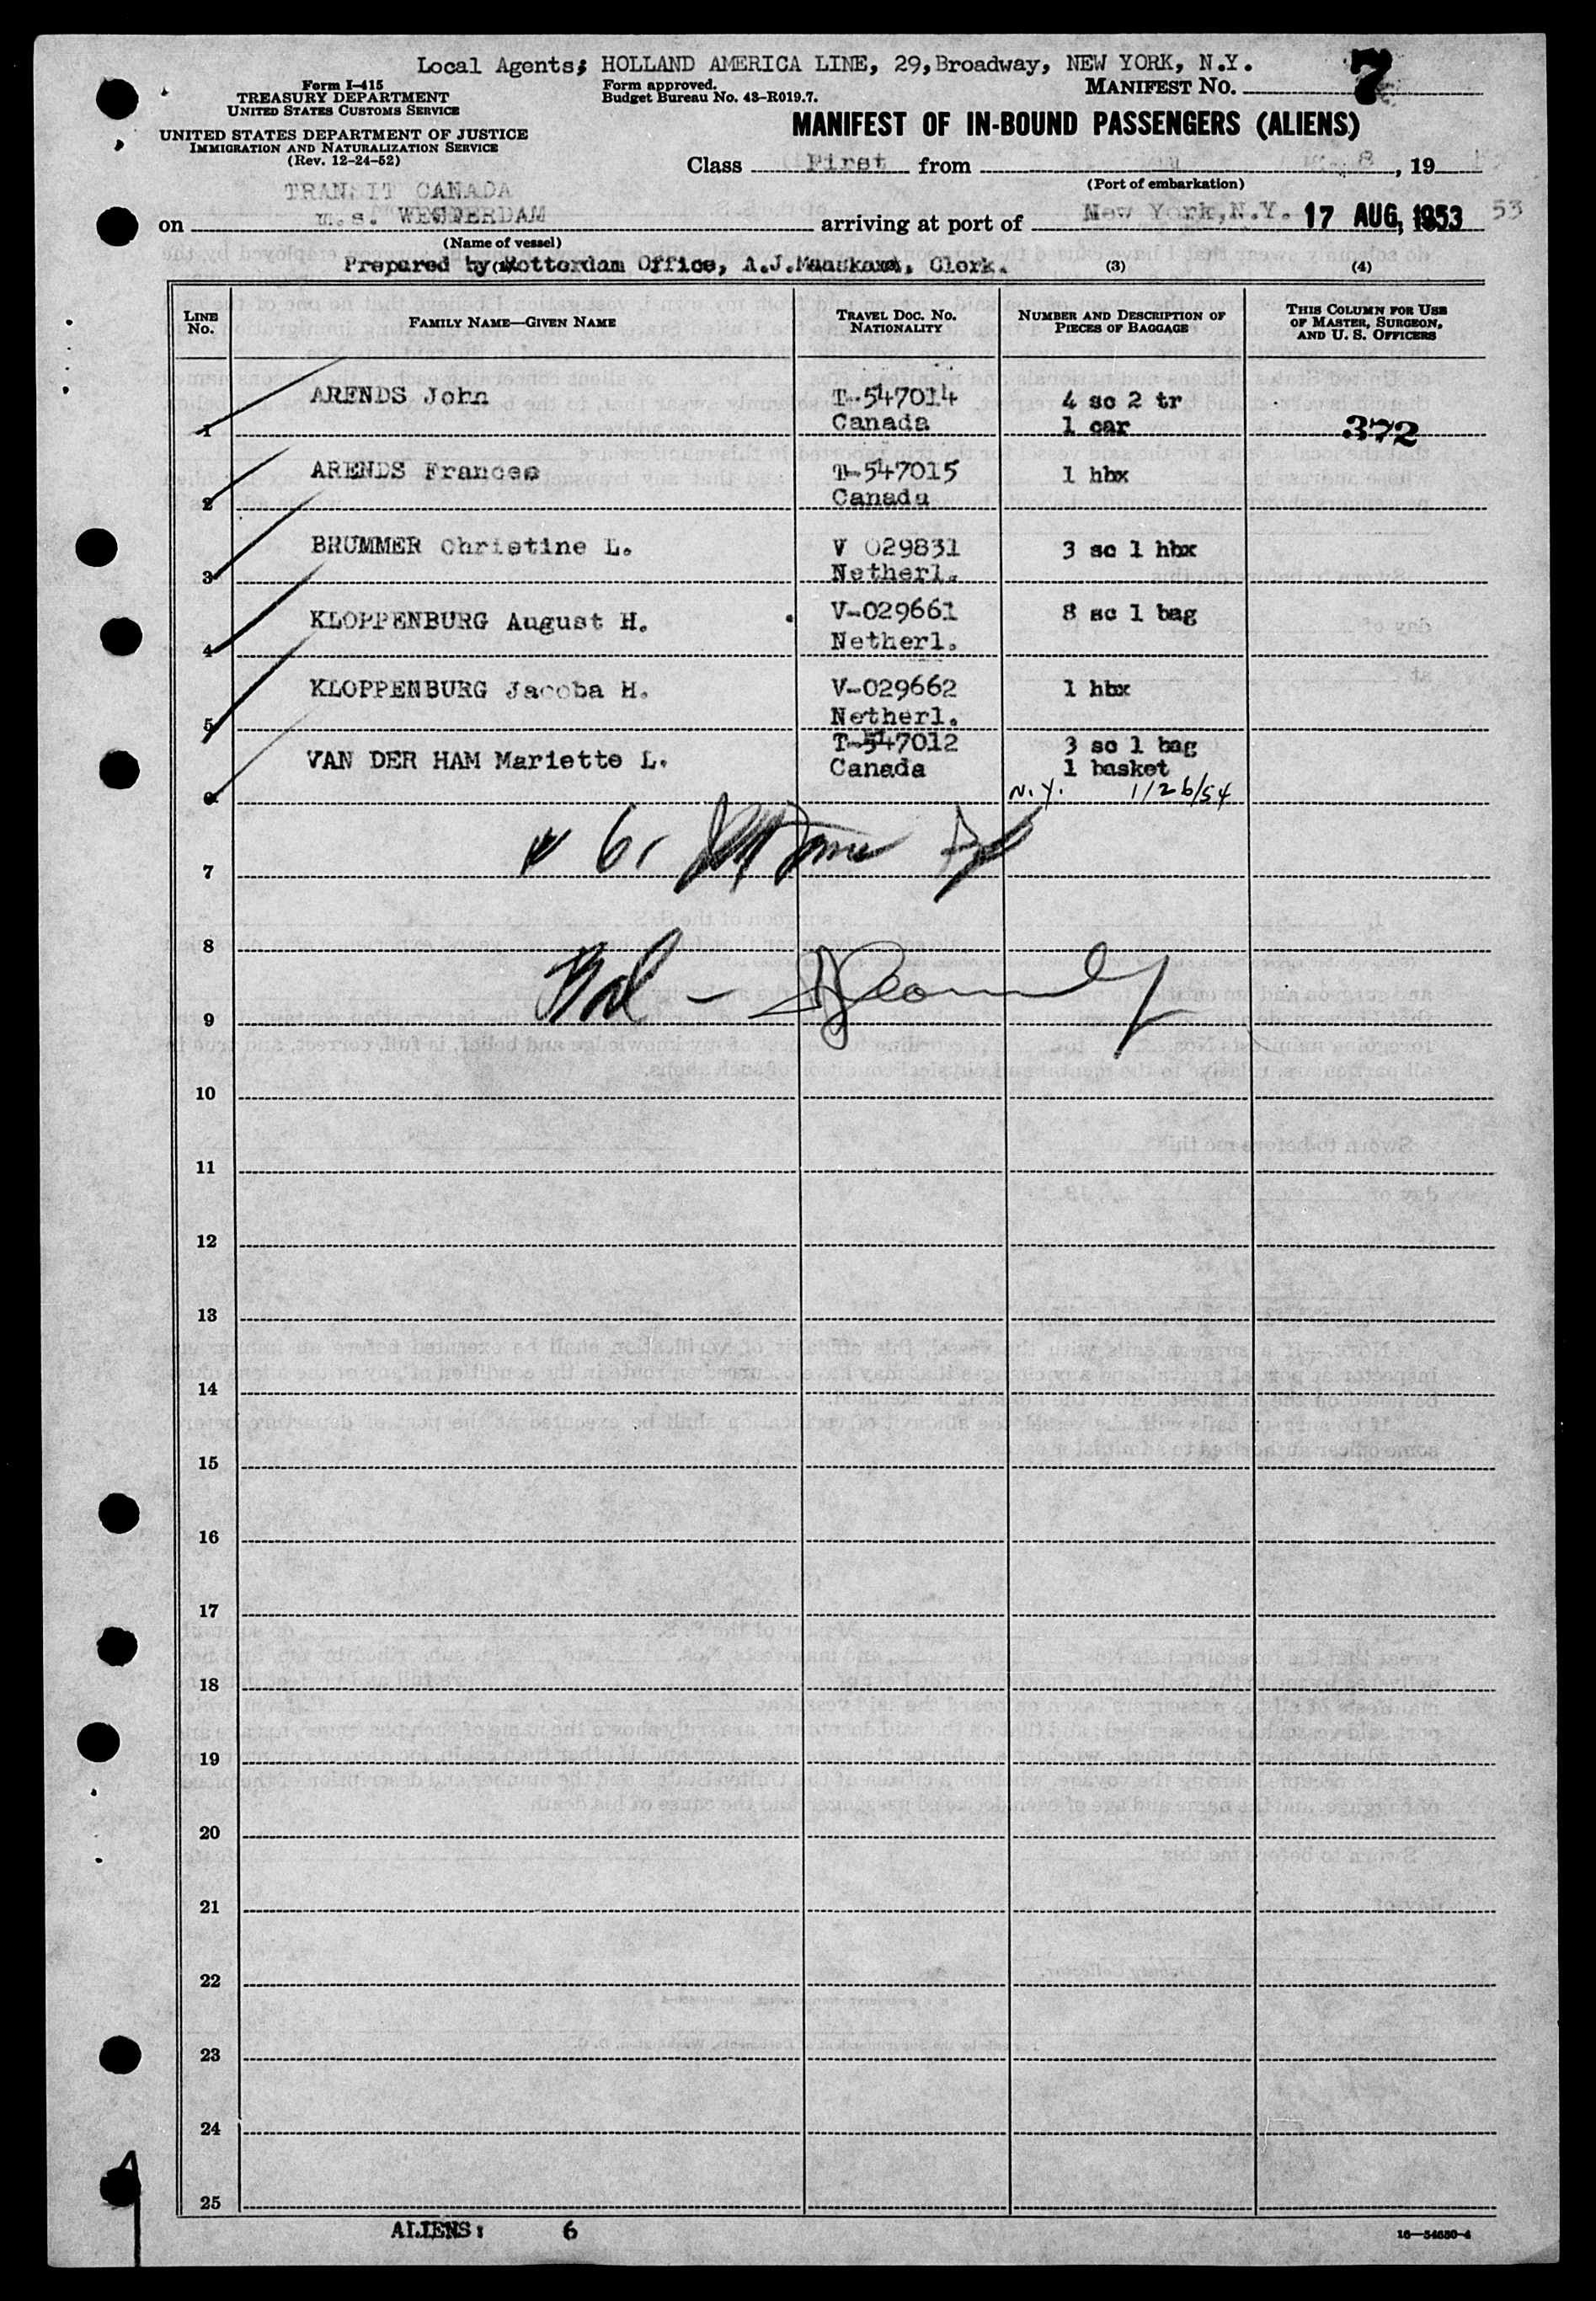 Local Agents; HOLLAND AMERICA LINE, 29,Broadway, NEW YORK, N.Y.
Form I-415
TREASURY DEPARTMENT
UNITED STATES CUSTOMS SERVICE
UNITED STATES DEPARTMENT OF JUSTICE
IMMIGRATION AND NATURALIZATION SERVICE
(Rev. 12-24-52)
Form approved.
Budget Bureau No. 43-R019.7.
MANIFEST NO. 7
MANIFEST OF IN-BOUND PASSENGERS (ALIENS)
Class First from 8, 19
(Port of embarkation)
TRANSIT CANADA
on m.s. WESTERDAM arriving at port of New York, N.Y. 17 AUG, 1953 53
(Name of vessel)
Prepared by Rotterdam Office, A.J. Clerk. (3) (4)
LINE No. FAMILY NAME—GIVEN NAME TRAVEL DOC. NO. NATIONALITY NUMBER AND DESCRIPTION OF PIECES OF BAGGAGE THIS COLUMN FOR USE OF MASTER, SURGEON, AND U. S. OFFICERS
1 ARENDS John T-547014 Canada 4 sc 2 tr 1 car 372
2 ARENDS Frances T-547015 Canada 1 hbx
3 BRUMMER Christine L. V 029831 Netherl. 3 sc 1 hbx
4 KLOPPENBURG August H. V-029661 Netherl. 8 sc 1 bag
5 KLOPPENBURG Jacoba H. V-029662 Netherl. 1 hbx
6 VAN DER HAM Mariette L. T-547012 Canada 3 sc 1 bag 1 basket
N.Y. 1/26/54
7
8
9
10
11
12
13
14
15
16
17
18
19
20
21
22
23
24
25
ALIENS: 6
16—54680-4